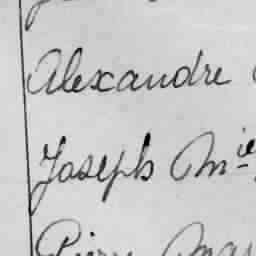 Alexandre
Joseph Mie
Pierre